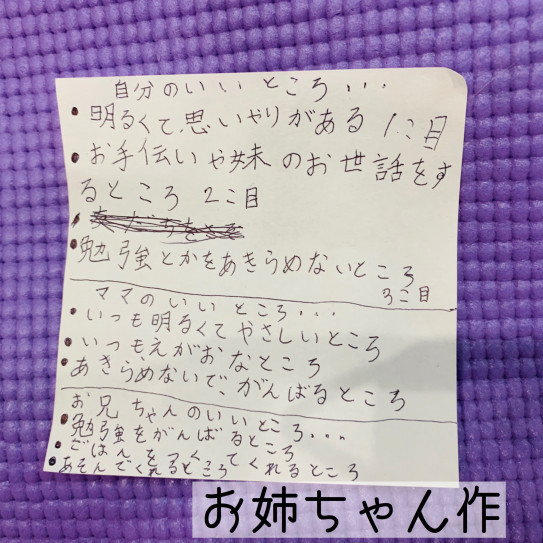 自分のいいところ...
• 明るくて、思いやりがある 1こ目
• お手伝いや妹のお世話をす
るところ 2こ目
• 勉強とかをあきらめないところ
3こ目
ママのいいところ...
• いつも明るくてやさしいところ
• いつもえがおなところ
• あきらめないで、がんばるところ
お兄ちゃんのいいところ...
• 勉強をがんばるところ
• ごはんをつくってくれるところ
• あそんでくれるところ
お姉ちゃん作